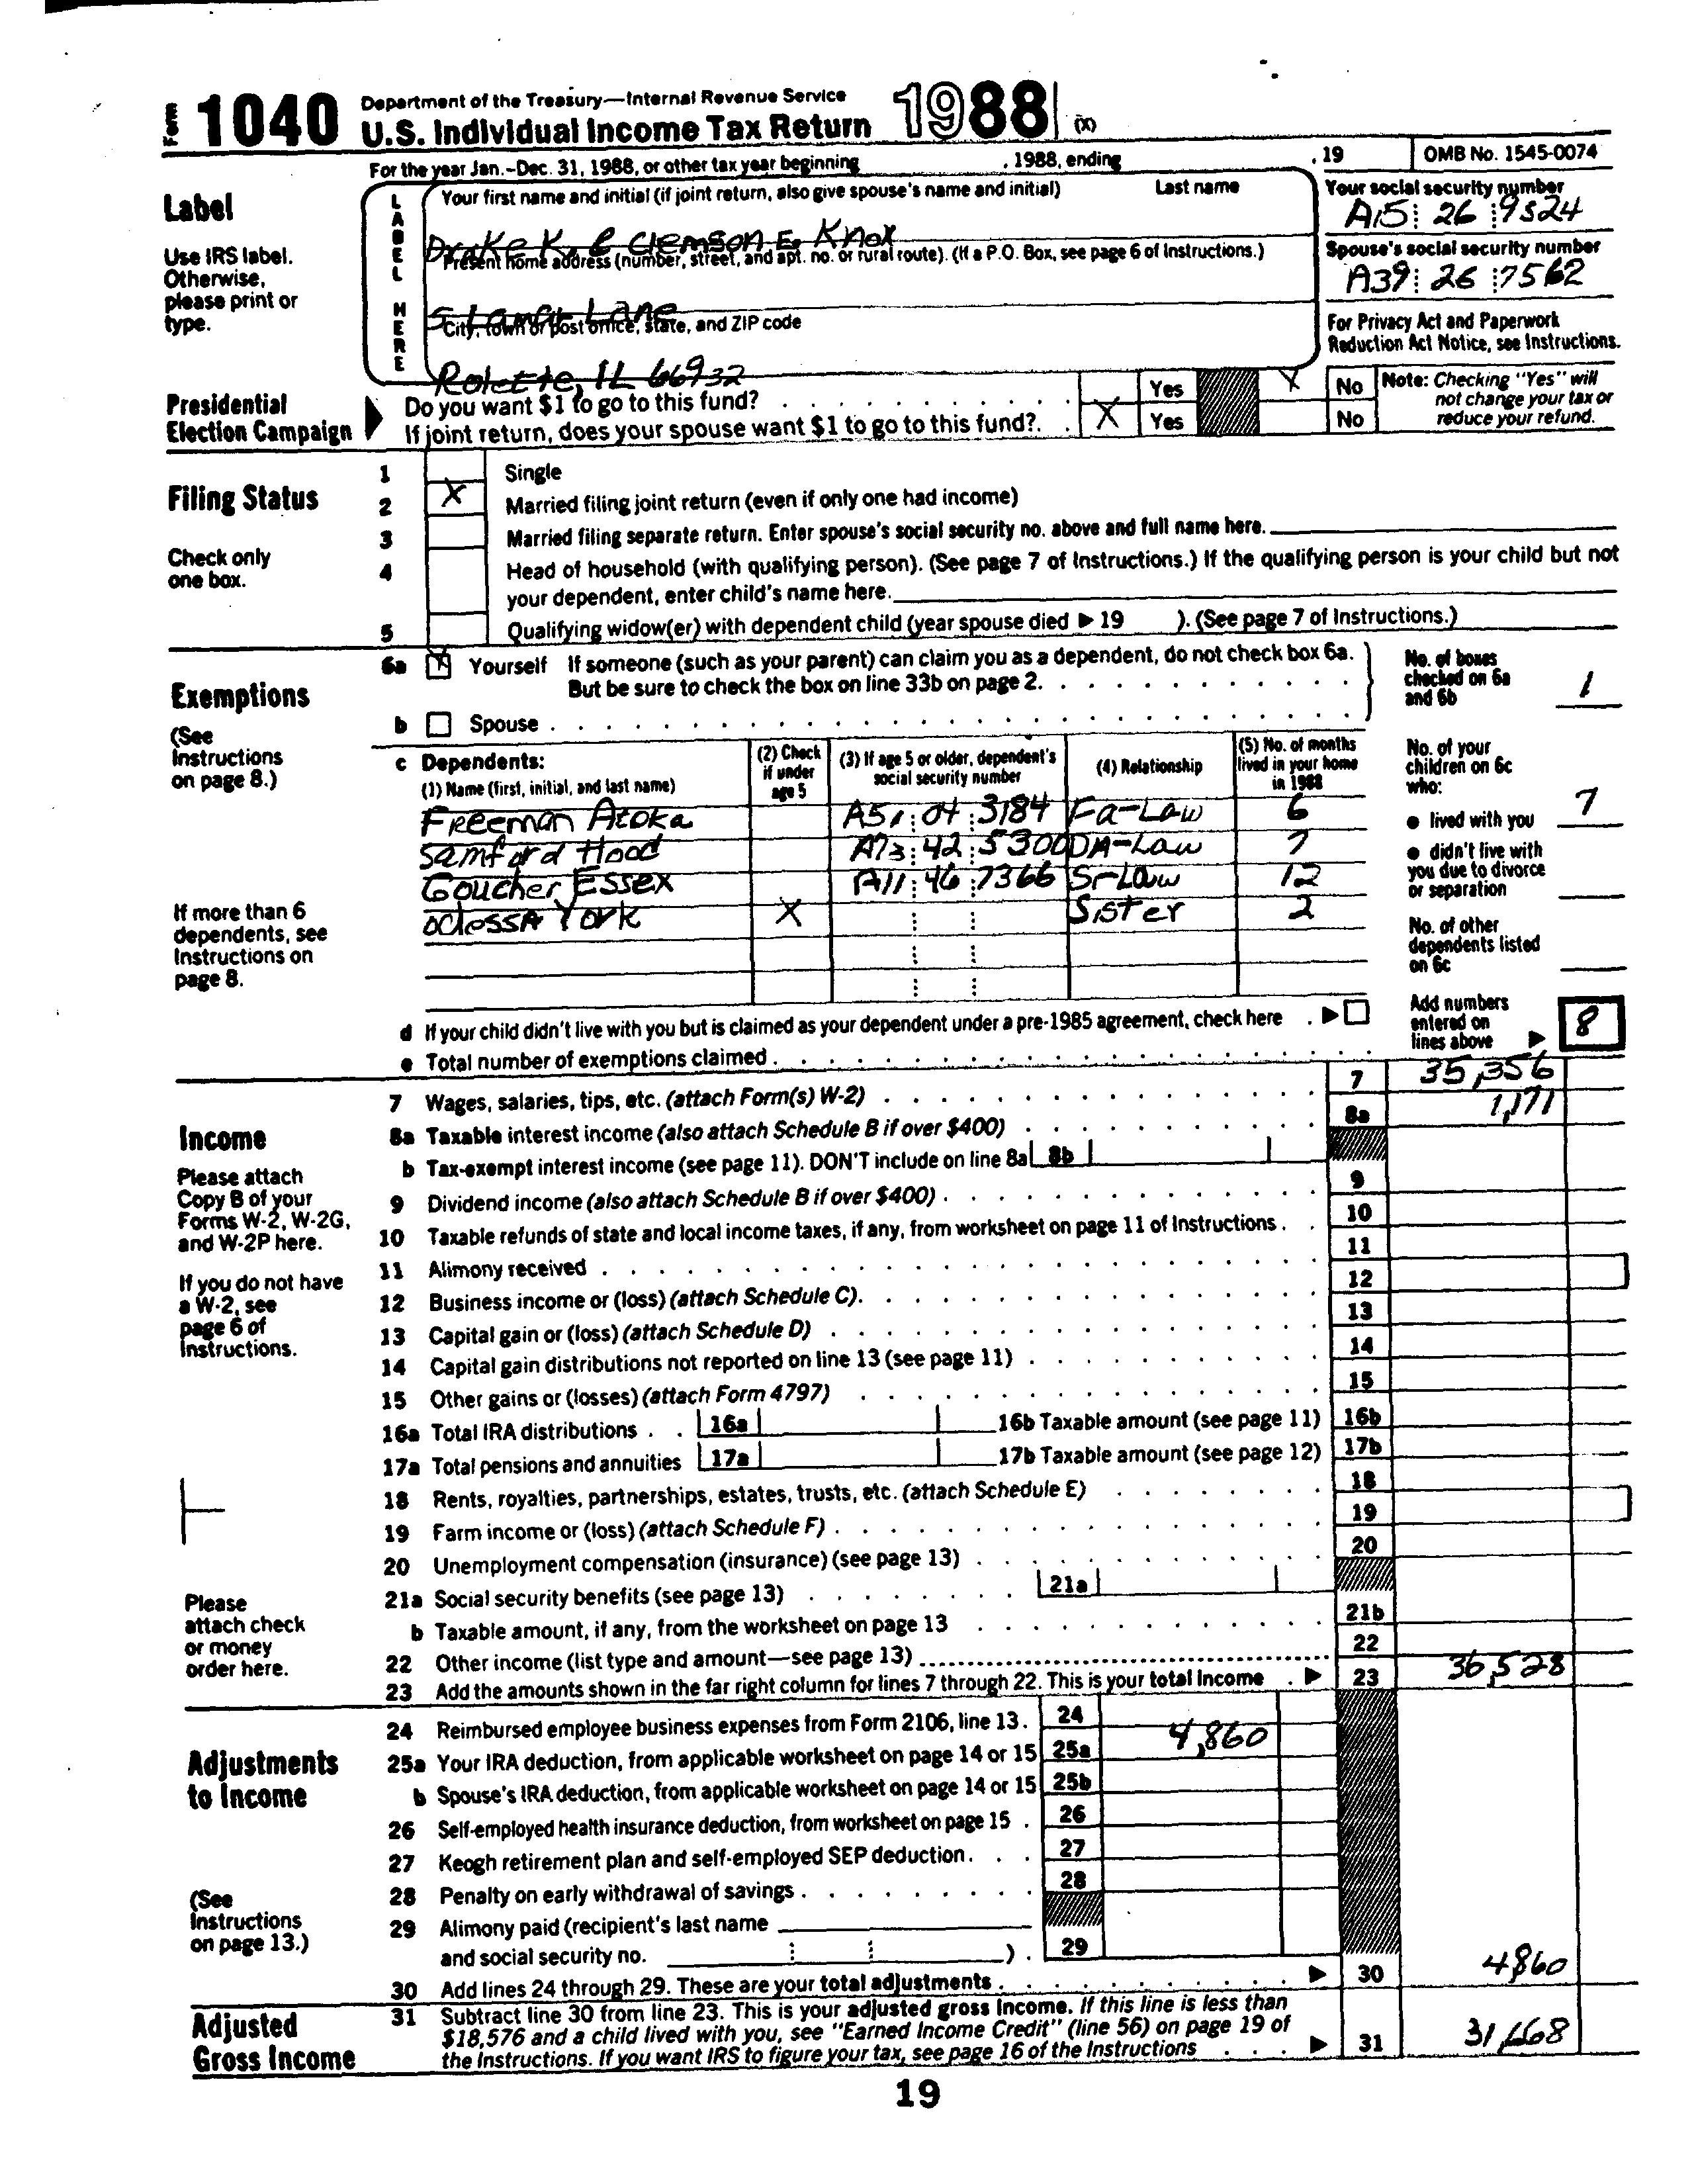 Form 1040 Department of the Treasury—Internal Revenue Service
U.S. Individual Income Tax Return 1988 (X)
For the year Jan.-Dec. 31, 1988, or other tax year beginning , 1988, ending , 19 OMB No. 1545-0074
Label
Use IRS label. Otherwise, please print or type.
LABEL HERE
Your first name and initial (if joint return, also give spouse's name and initial) Last name
Drake K. & Clemson E. Knox
Your social security number
A15 26 9524
Present home address (number, street, and apt. no. or rural route). (If a P.O. Box, see page 6 of Instructions.)
5 Lamar Lane
Spouse's social security number
A39 26 7562
City, town or post office, state, and ZIP code
Rolette, IL 66932
For Privacy Act and Paperwork Reduction Act Notice, see Instructions.
Presidential Election Campaign
Do you want $1 to go to this fund? Yes X No
If joint return, does your spouse want $1 to go to this fund? X Yes No
Note: Checking "Yes" will not change your tax or reduce your refund.
Filing Status
Check only one box.
1 Single
2 X Married filing joint return (even if only one had income)
3 Married filing separate return. Enter spouse's social security no. above and full name here.
4 Head of household (with qualifying person). (See page 7 of Instructions.) If the qualifying person is your child but not
your dependent, enter child's name here.
5 Qualifying widow(er) with dependent child (year spouse died ▶ 19 ). (See page 7 of Instructions.)
Exemptions
(See Instructions on page 8.)
6a X Yourself If someone (such as your parent) can claim you as a dependent, do not check box 6a.
But be sure to check the box on line 33b on page 2.
b Spouse
No. of boxes checked on 6a and 6b 1
c Dependents:
(1) Name (first, initial, and last name) (2) Check if under age 5 (3) If age 5 or older, dependent's social security number (4) Relationship (5) No. of months lived in your home in 1988
Freeman Atoka A51 04 3184 Fa-Law 6
Samford Hood A73 42 5300 DA-Law 7
Goucher Essex A11 46 7366 Sr-Law 12
OdessA York X Sister 2
No. of your children on 6c who:
● lived with you 7
● didn't live with you due to divorce or separation
No. of other dependents listed on 6c
If more than 6 dependents, see Instructions on page 8.
d If your child didn't live with you but is claimed as your dependent under a pre-1985 agreement, check here ▶
e Total number of exemptions claimed
Add numbers entered on lines above ▶ 8
Income
Please attach Copy B of your Forms W-2, W-2G, and W-2P here.
If you do not have a W-2, see page 6 of Instructions.
Please attach check or money order here.
7 Wages, salaries, tips, etc. (attach Form(s) W-2) 7 35,356
8a Taxable interest income (also attach Schedule B if over $400) 8a 1,171
b Tax-exempt interest income (see page 11). DON'T include on line 8a 8b
9 Dividend income (also attach Schedule B if over $400) 9
10 Taxable refunds of state and local income taxes, if any, from worksheet on page 11 of Instructions 10
11 Alimony received 11
12 Business income or (loss) (attach Schedule C) 12
13 Capital gain or (loss) (attach Schedule D) 13
14 Capital gain distributions not reported on line 13 (see page 11) 14
15 Other gains or (losses) (attach Form 4797) 15
16a Total IRA distributions 16a 16b Taxable amount (see page 11) 16b
17a Total pensions and annuities 17a 17b Taxable amount (see page 12) 17b
18 Rents, royalties, partnerships, estates, trusts, etc. (attach Schedule E) 18
19 Farm income or (loss) (attach Schedule F) 19
20 Unemployment compensation (insurance) (see page 13) 20
21a Social security benefits (see page 13) 21a
b Taxable amount, if any, from the worksheet on page 13 21b
22 Other income (list type and amount—see page 13) 22
23 Add the amounts shown in the far right column for lines 7 through 22. This is your total income ▶ 23 36,528
Adjustments to Income
(See Instructions on page 13.)
24 Reimbursed employee business expenses from Form 2106, line 13. 24
25a Your IRA deduction, from applicable worksheet on page 14 or 15 25a 4,860
b Spouse's IRA deduction, from applicable worksheet on page 14 or 15 25b
26 Self-employed health insurance deduction, from worksheet on page 15 26
27 Keogh retirement plan and self-employed SEP deduction 27
28 Penalty on early withdrawal of savings 28
29 Alimony paid (recipient's last name
and social security no. ) 29
30 Add lines 24 through 29. These are your total adjustments ▶ 30 4,860
Adjusted Gross Income
31 Subtract line 30 from line 23. This is your adjusted gross income. If this line is less than
$18,576 and a child lived with you, see "Earned Income Credit" (line 56) on page 19 of
the Instructions. If you want IRS to figure your tax, see page 16 of the Instructions ▶ 31 31,668
19